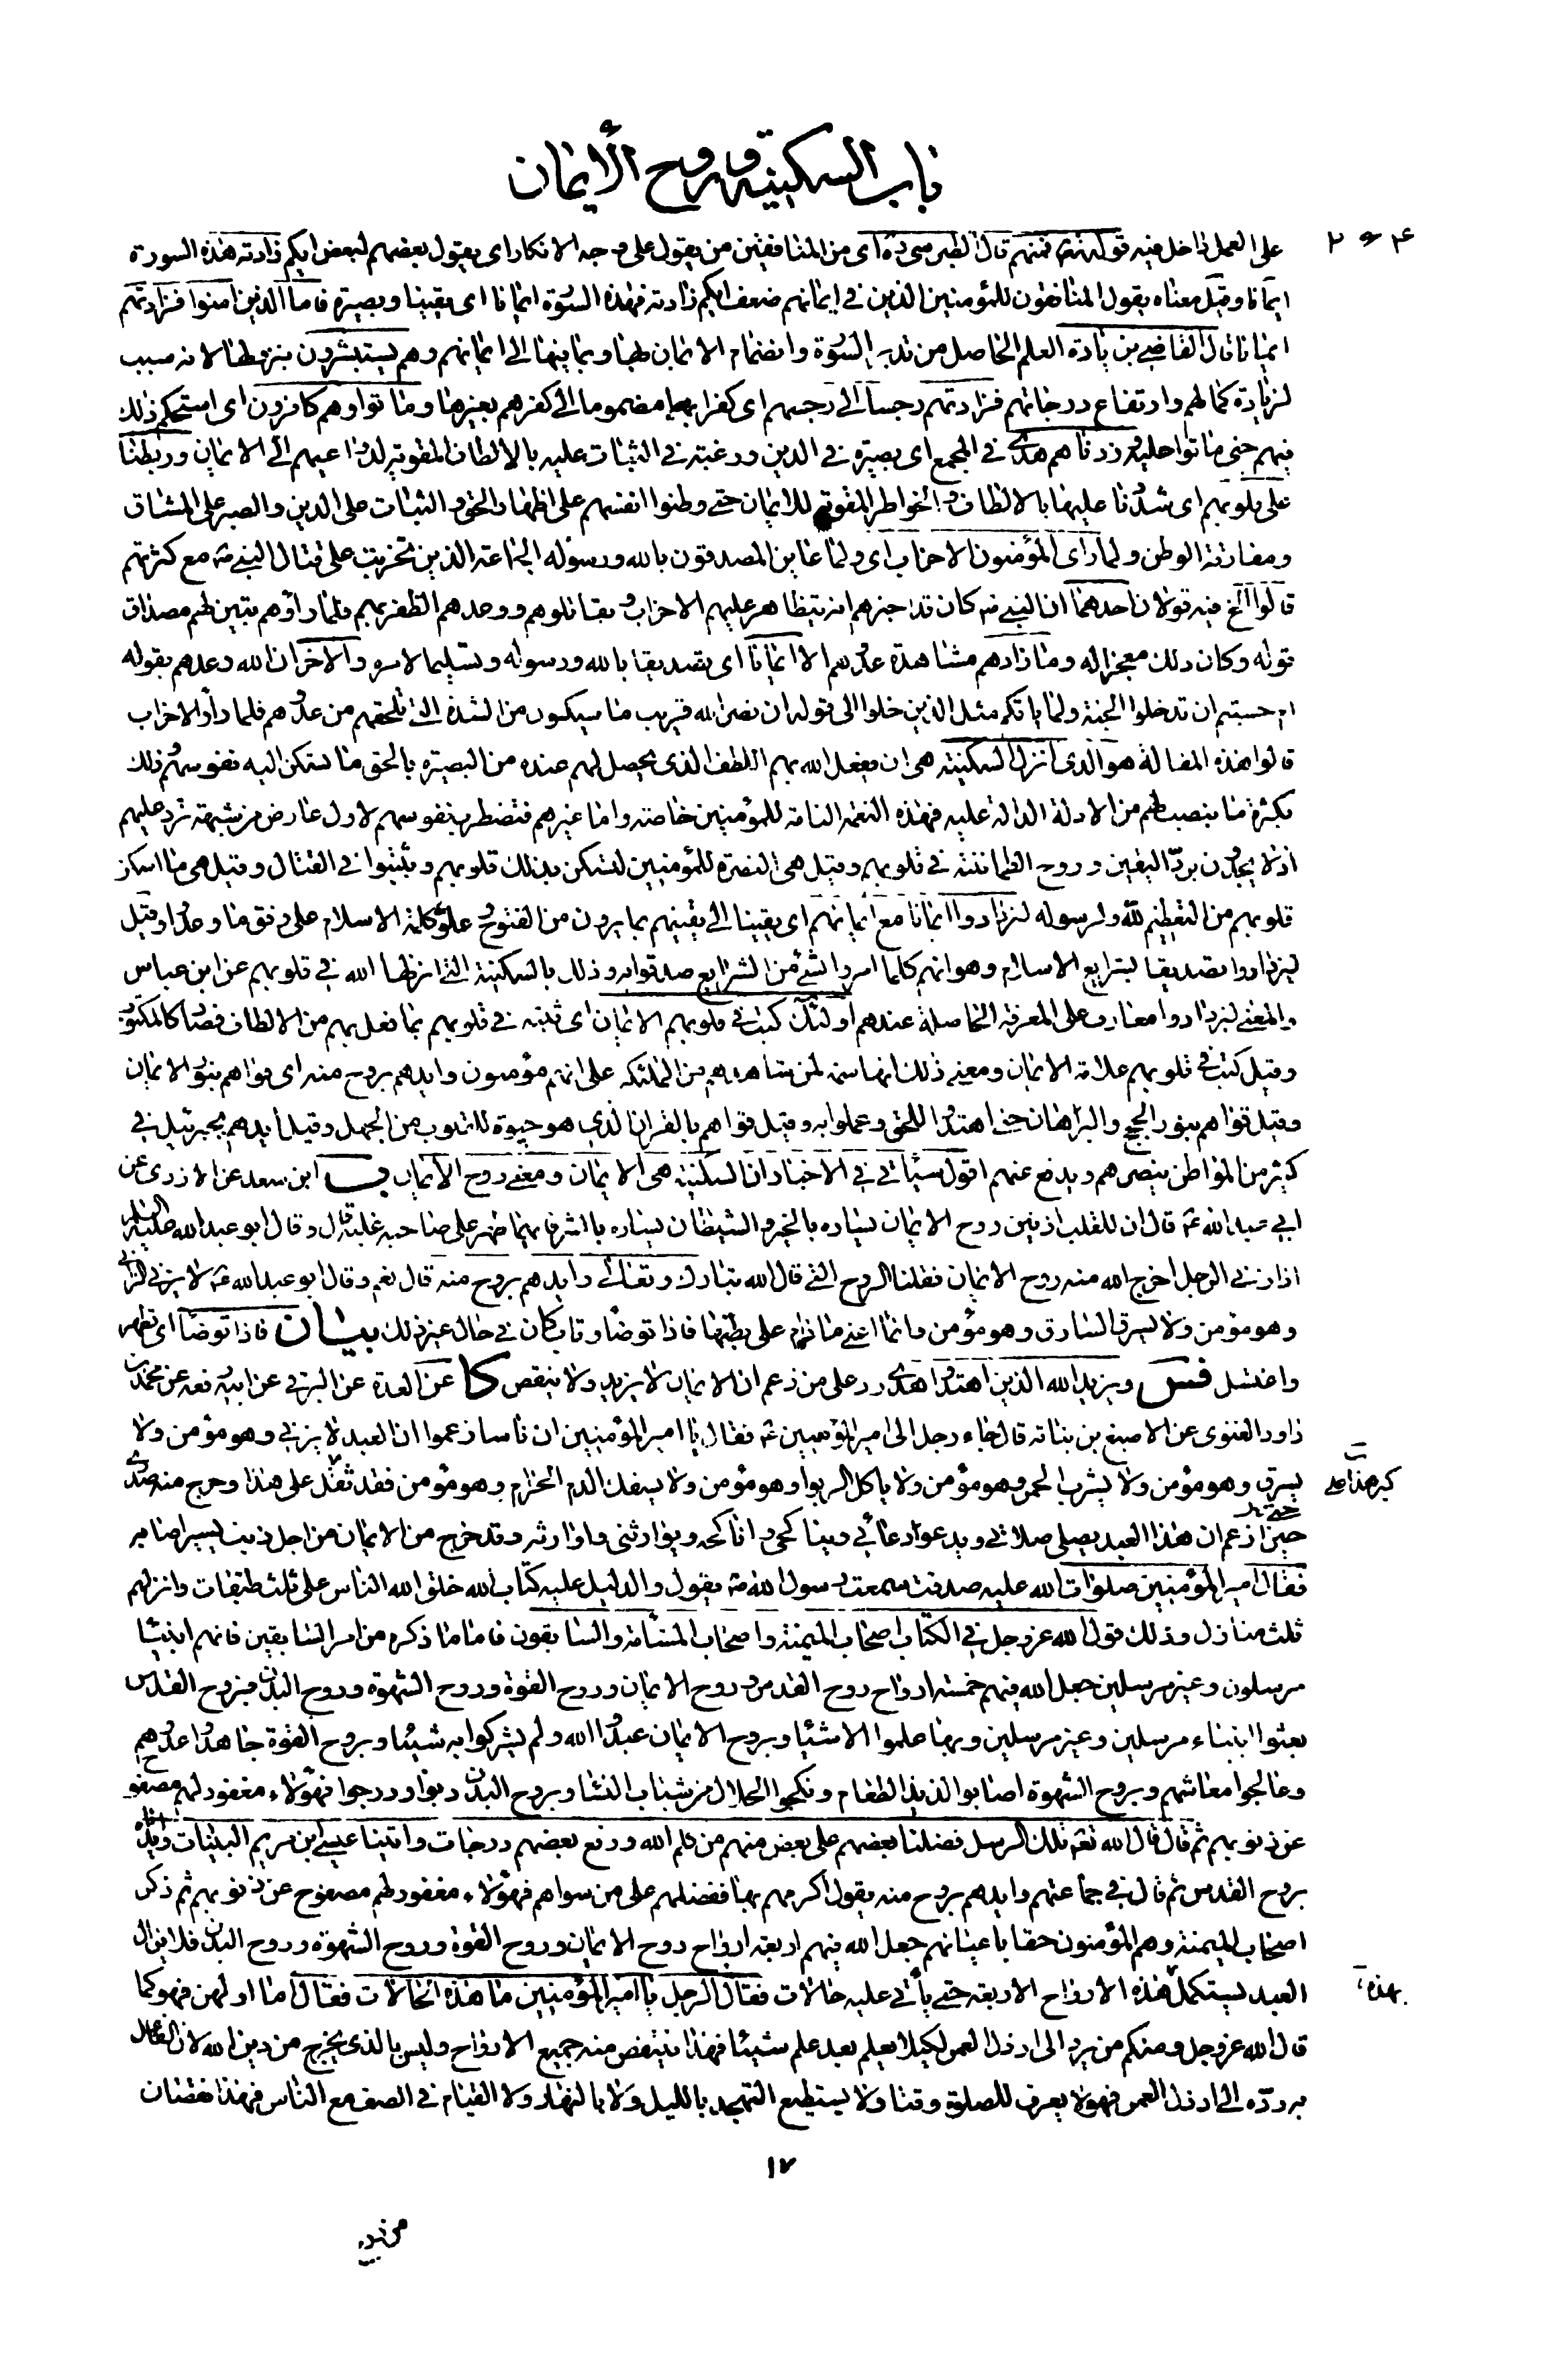 باب السكينة وروح الأيمان
٢ و ٤
على العمل داخل فيه قوله تعه فمنهم قال الطبرسى ره اى من المنافقين من يقول على وجه الانكار اى يقول بعضهم لبعض ايكم زادته هذه السورة
ايمانا وقيل معناه يقول المنافقون للمؤمنين الذين فى ايمانهم ضعف ايكم زادته هذه السورة ايمانا اى يقينا وبصيرة فاما الذين امنوا فزادتهم
ايمانا قال القاضى بزيادة العلم الحاصل من تدبر السورة وانضمام الايمان بها وبما فيها الى ايمانهم وهم يستبشرون بنزولها لانه سبب
لزيادة كمالهم وارتفاع درجاتهم فزادتهم رجسا الى رجسهم اى كفرا بها مضموما الى كفرهم بغيرها وماتوا وهم كافرون اى استحكم ذلك
فيهم حتى ماتوا عليه وزدناهم هدى فى المجمع اى بصيرة فى الدين ورغبة فى الثبات عليه بالالطاف المقوية لدواعيهم الى الايمان وربطنا
على قلوبهم اى شددنا عليها بالالطاف والخواطر المقوية للايمان حتى وطنوا انفسهم على اظهار الحق والثبات على الدين والصبر على المشاق
ومفارقة الوطن ولما راى المؤمنون الاحزاب اى ولما عاين المصدقون بالله ورسوله الجماعة الذين تحزبت على قتال النبى ص مع كثرتهم
قالوا الخ فيه قولان احدهما ان النبى ص كان قد اخبرهم انه يتظاهر عليهم الاحزاب ويقاتلوهم ووعدهم الظفر بهم فلما راوهم تبين لهم مصداق
قوله وكان ذلك معجزا له وما زادهم مشاهدة عدوهم الا ايمانا اى تصديقا بالله ورسوله وتسليما لامره والاخر ان الله وعدهم بقوله
ام حسبتم ان تدخلوا الجنة ولما ياتكم مثل الذين خلوا الى قوله ان نصر الله قريب ما سيكون من الشدة التى تلحقهم من عدوهم فلما راو الاحزاب
قالوا هذه المقالة هو الذى انزل السكينة هى ان يفعل الله بهم اللطف الذى يحصل لهم عنده من البصيرة بالحق ما تسكن اليه نفوسهم وذلك
بكثرة ما ينصب لهم من الادلة الدالة عليه فهذه النعمة التامة للمؤمنين خاصة واما غيرهم فتضطرب نفوسهم لاول عارض من شبهة ترد عليهم
اذ لا يجدون برد اليقين وروح الطمانينة فى قلوبهم وقيل هى النصرة للمؤمنين لتسكن بذلك قلوبهم ويثبتوا فى القتال وقيل هى ما اسكن
قلوبهم من التعظيم لله ولرسوله ليزدادوا ايمانا مع ايمانهم اى يقينا الى يقينهم بما يرون من الفتوح وعلو كلمة الاسلام على وفق ما وعدوا وقيل
ليزدادوا تصديقا بشرايع الاسلام وهو انهم كلما امروا بشئ من الشرايع صدقوا به وذلك بالسكينة التى انزلها الله فى قلوبهم عن ابن عباس
والمعنى ليزدادوا معارف على المعرفة الحاصلة عندهم اولئك كتب فى قلوبهم الايمان اى ثبته فى قلوبهم بما فعل بهم من الالطاف فصار كالمكتوب
وقيل كتب فى قلوبهم علامة الايمان ومعنى ذلك انها سمة لمن شاهدهم من الملئكة على انهم مؤمنون وايدهم بروح منه اى قواهم بنور الايمان
وقيل قواهم بنور الحجج والبراهان حتى اهتدوا للحق وعملوا به وقيل قواهم بالقران الذى هو حيوة للقلوب من الجهل وقيل ايدهم بجبرئيل فى
كثير من المواطن ينصرهم ويدفع عنهم اقول سياتى فى الاخبار ان السكينة هى الايمان ومعنى روح الايمان ب ابن سعد عن الازدى عن
ابى عبد الله ع قال ان للقلب اذنين روح الايمان يساره بالخير والشيطان يساره بالشر فايهما ظهر على صاحبه غلبه قال وقال ابو عبد الله عليه السلم
اذا زنى الرجل اخرج الله منه روح الايمان فقلنا الروح التى قال الله تبارك وتعالى وايدهم بروح منه قال نعم وقال ابو عبد الله ع لا يزنى الزانى
وهو مؤمن ولا يسرق السارق وهو مؤمن وانما اعنى ما دام على بطنها فاذا توضأ وتاب كان فى حال غير ذلك بيان فاذا توضأ اى تطهر
واغتسل فس ويزيد الله الذين اهتدوا هدى رد على من زعم ان الايمان لا يزيد ولا ينقص كا عن العدة عن البرقى عن ابيه رفعه عن محمد بن
داود الغنوى عن الاصبغ بن بناته قال جاء رجل الى امير المؤمنين ع فقال يا امير المؤمنين ان ناسا زعموا ان العبد لا يزنى وهو مؤمن ولا
يسرق وهو مؤمن ولا يشرب الخمر وهو مؤمن ولا ياكل الربوا وهو مؤمن ولا يسفك الدم الحرام وهو مؤمن فقد ثقل على هذا وحرج منه صدرى
حين ازعم ان هذا العبد يصلى صلاتى ويدعو دعائى ويناكحنى واناكحه ويوارثنى واوارثه وقد خرج من الايمان من اجل ذنب يسير اصابه
فقال امير المؤمنين صلوات الله عليه صدقت سمعت رسول الله ص يقول والدليل عليه كتاب الله خلق الله الناس على ثلث طبقات وانزلهم
ثلث منازل وذلك قول الله عز وجل فى الكتاب اصحاب الميمنة واصحاب المشأمة والسابقون فاما ما ذكره من امر السابقين فانهم انبياء
مرسلون وغير مرسلين جعل الله فيهم خمسة ارواح روح القدس وروح الايمان وروح القوة وروح الشهوة وروح البدن فبروح القدس
بعثوا انبياء مرسلين وغير مرسلين وبها علموا الاشياء وبروح الايمان عبدوا الله ولم يشركوا به شيئا وبروح القوة جاهدوا عدوهم
وعالجوا معاشهم وبروح الشهوة اصابوا لذيذ الطعام ونكحوا الحلال من شباب النساء وبروح البدن دبوا ودرجوا فهؤلاء مغفور لهم مصفوح
عن ذنوبهم ثم قال قال الله تعه تلك الرسل فضلنا بعضهم على بعض منهم من كلم الله ورفع بعضهم درجات واتينا عيسى ابن مريم البينات وايدناه
بروح القدس ثم قال فى جماعتهم وايدهم بروح منه يقول اكرمهم بها ففضلهم على من سواهم فهؤلاء مغفور لهم مصفوح عن ذنوبهم ثم ذكر
اصحاب الميمنة وهم المؤمنون حقا باعيانهم جعل الله فيهم اربعة ارواح روح الايمان وروح القوة وروح الشهوة وروح البدن فلا يزال
العبد يستكمل هذه الارواح الاربعة حتى يأتى عليه حالات فقال الرجل يا امير المؤمنين ما هذه الحالات فقال اما اولهن فهو كما
بهذه
قال الله عز وجل ومنكم من يرد الى ارذل العمر لكيلا يعلم بعد علم شيئا فهذا ينتقص منه جميع الارواح وليس بالذى يخرج من دين الله لان الفاعل
به رده الى ارذل العمر فهو لا يعرف للصلوة وقتا ولا يستطيع التهجد بالليل ولا بالنهار ولا القيام فى الصف مع الناس فهذا نقصان
١٧